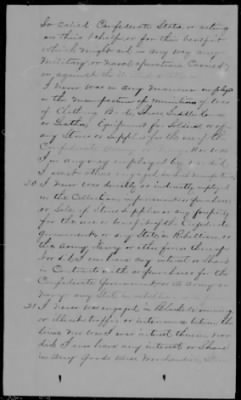 So called Confederate States or acting
on their behalf or for their benefit
which might act in any way any
Military or Naval operations Carried
on against the United States
I never was in any manner employed
in the manufacture of munitions of War
of Clothing Boots Shoes Saddles Harness
or Leather, Equipments for Soldiers or of
any Stores or Supplies for the use of the
Confederate
I in any way employed
assist others engaged
20 I never was directly or indirectly employed
in the Collection or purchase
or Sale of Stores supplies or any property
for the use or benefit of the Confederate
Government or any State in Rebellion, or
the Army Navy or other forces thereof
nor did I ever have any interest or Share
in Contracts or purchases for the
Confederate Government or its Army or
Navy or any State in rebellion
21 I never was engaged in Blockade running
or illicit traffic or intercourse between the
lines nor was I ever interested therein nor
did I ever have any interest or Share
in any Goods Wares Merchandise